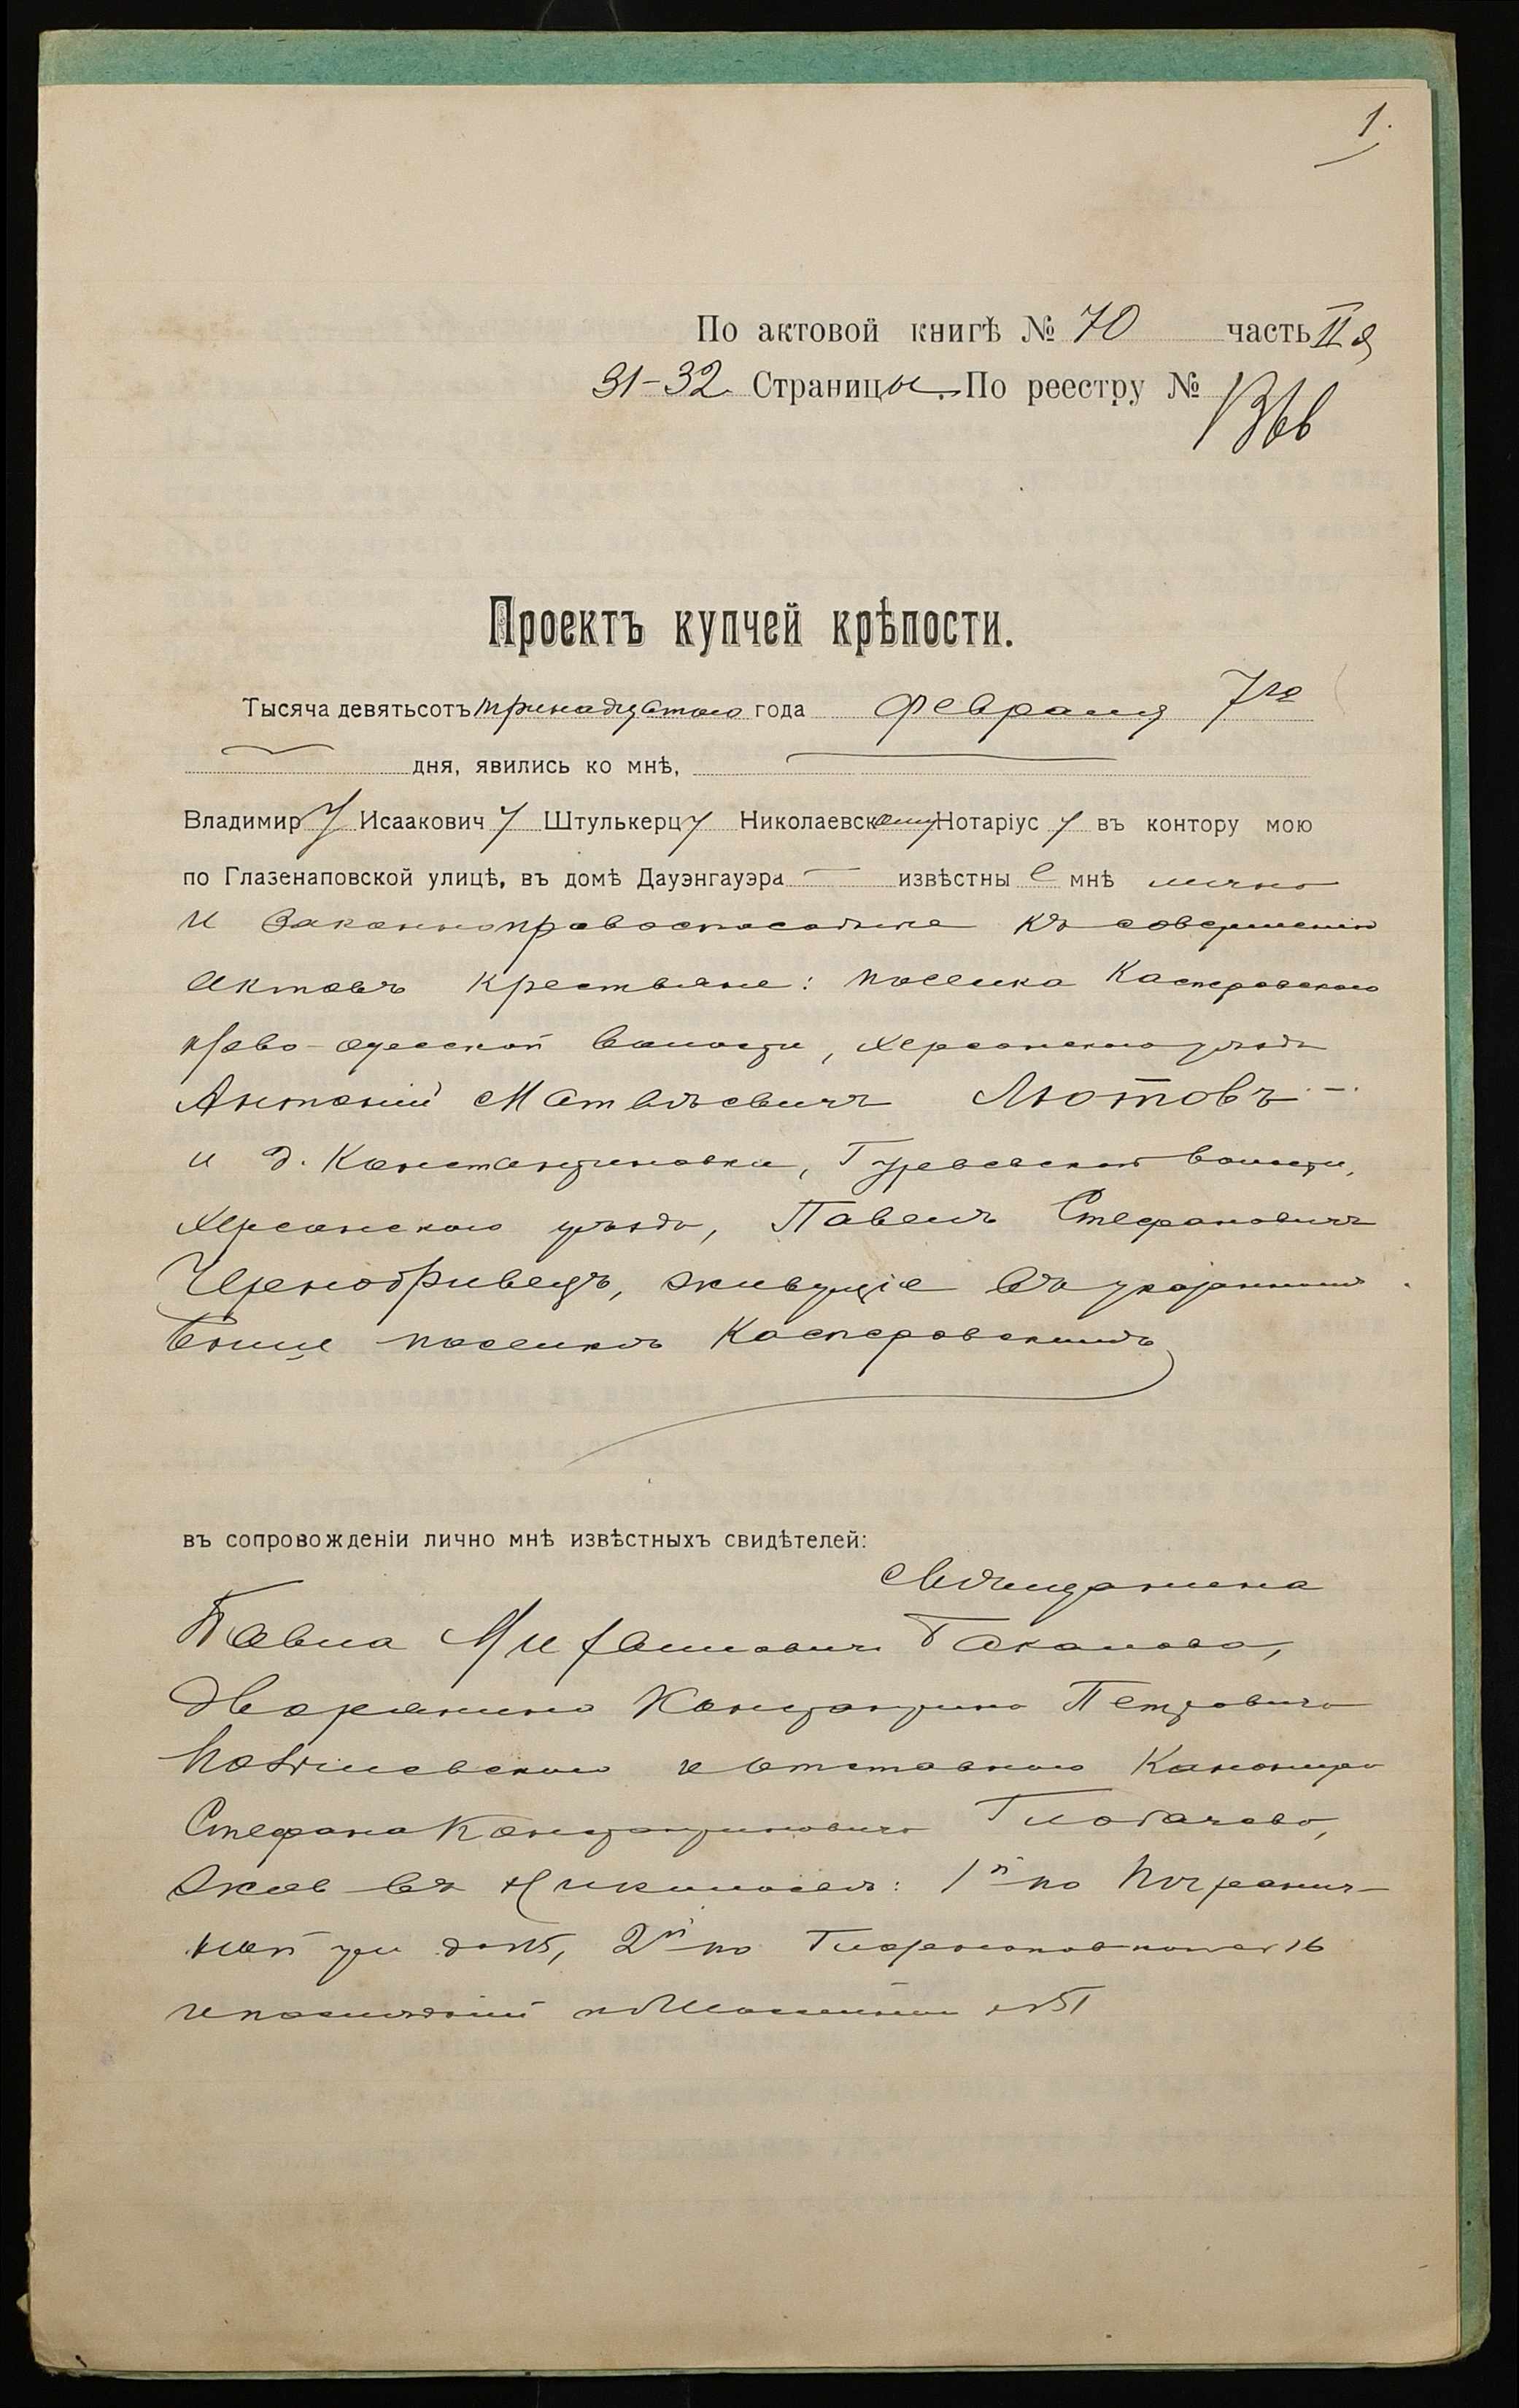 1.
По актовой книгѣ № 70 часть II я
31-32 Страницы. По реестру №
Проектъ купчей крѣпости.
Тысяча девятьсотъ тринадцатого года февраля 7го
дня, явились ко мнѣ,
Владимиру Исааковичу Штулькерцу Николаевскому Нотаріусу въ контору мою
по Глазенаповской улицѣ, въ домѣ Дауэнгауэра извѣстные мнѣ лично
и законноправоспособные къ совершенію
актовъ крестьяне: поселка Касперовскаго
ново-одесской волости, херсонскаго уѣзда
Антоній Матвѣевичъ Лютовъ
и д. Константиновки, Гурьевской волости,
херсонскаго уѣзда, Павелъ Стефановичъ
Чернобривецъ, живущіе въ указанномъ
выше поселкѣ Касперовскомъ
въ сопровожденіи лично мнѣ извѣстныхъ свидѣтелей:
мѣщанина
Павла Михайловича
дворянина Константина Петровича
и отставного
Стефана Константиновича
жив въ Николаевѣ: 1й по Погранич-
ной ул 2й по
и послѣдній